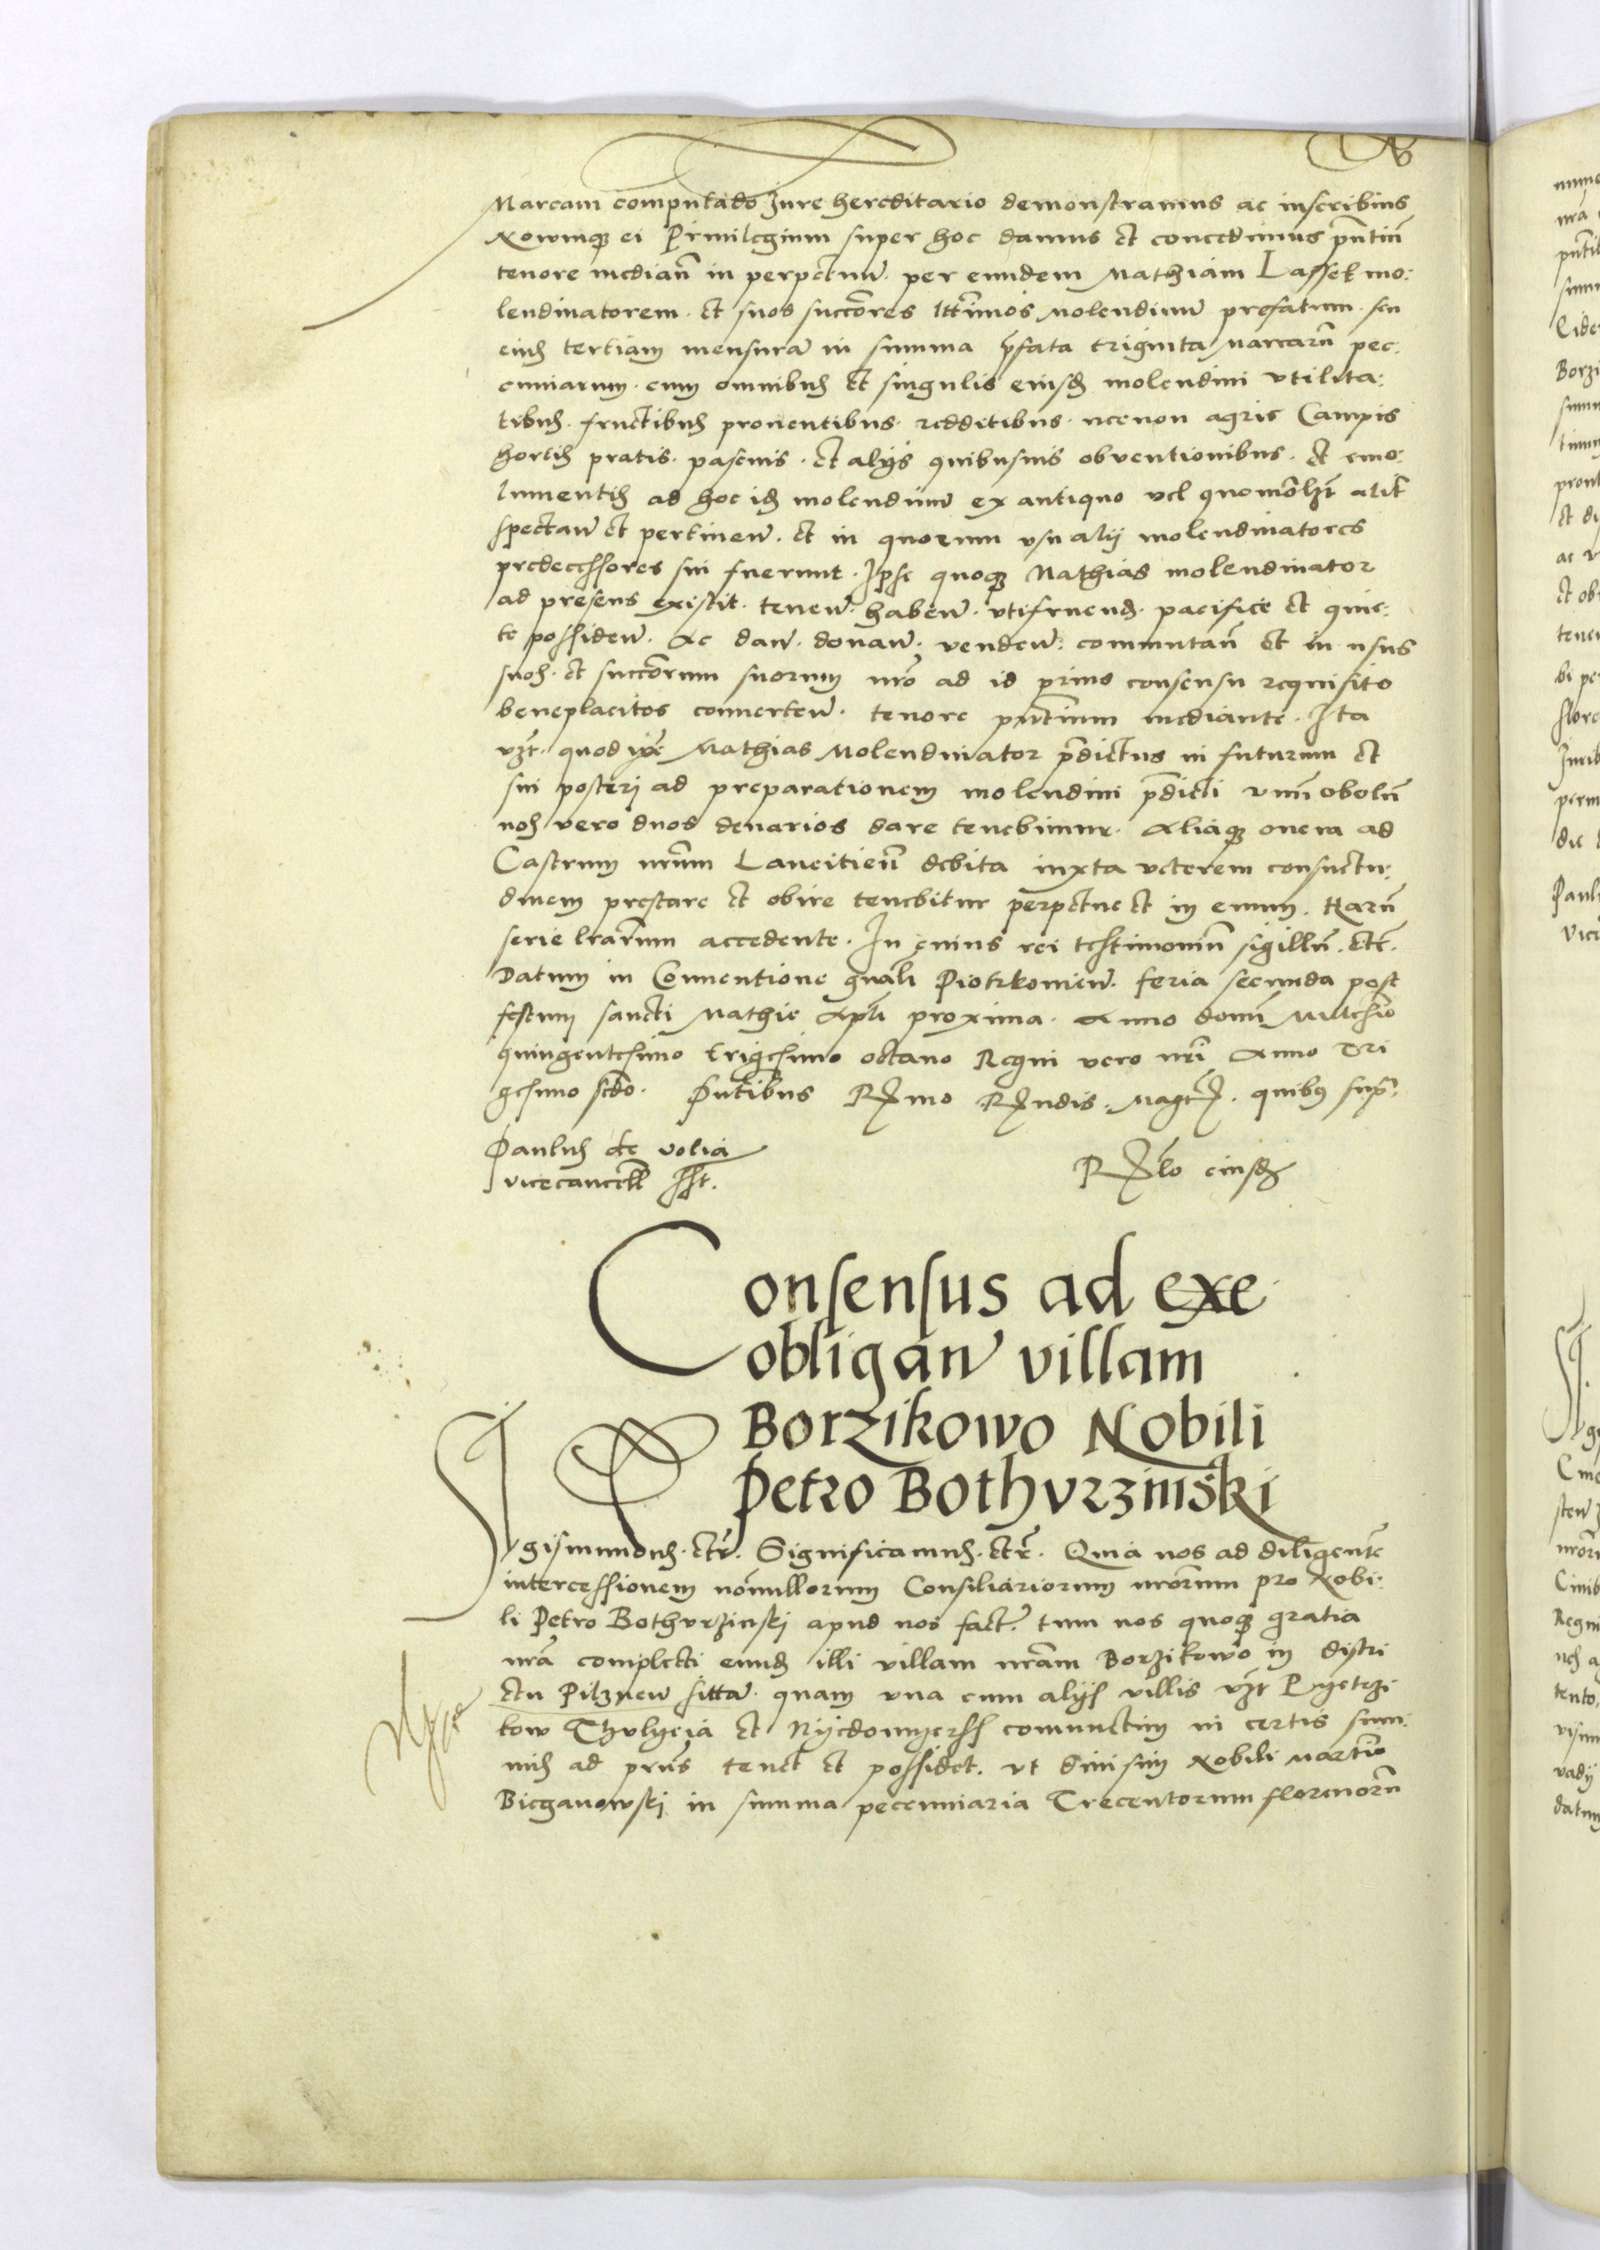 Marcam computado Iure hereditario demonstramus ac inscribimus
Nowmq3 ei Privilegium super hoc damus et concedimus pntiū
tenore mediañ in perpetuū. per eundem Mathiam Lassek mo:
lendinatorem. et suos succōres lttimos Molendinū prefatum. seu
eius tertiam mensurā in summa pfata triginta Marcarū pec:
cuniarum. cum omnibus et singulis eiusd molendini vtilita:
tibus. fructibus prouentibus. redditibus. necnon agris Campis
hortis pratis. pascuis. et alijs quibusuis obventionibus. et emo:
lumentis ad hoc id molendinū ex antiquo vel quomōlzt alit
spectañ et pertineñ. et in quorum vsu alij molendinatores
predecessores sui fuerunt. Ipse quoq3 Mathias molendinator
ad presens existit. teneñ. habeñ. vtifruend. pacifice et quie:
te possideñ. Ac dañ. donañ. vendeñ. commutañ et in usus
suos. et succōrum suorum nrō ad id primo consensu requisito
beneplacitos conuerteñ. tenore pntium mediante. Ita
vzt. quod ipse Mathias Molendinator pdictus in futurum et
sui posteri ad preparationem molendini pdicti vnū obolū
nos vero duos denarios dare tenebimur. Aliaq3 onera ad
Castrum nrum Lancitieñ debita iuxta veterem consuetu:
dinem prestare et obire tenebitur perpetue et in euum. Harū
serie lrarum accedente. In cuius rei testimoniū sigillū. etc.
Datum in Conuentione gnali Piotrkouieñ. feria secunda post
festum sancti Mathie Apli proxima. Anno domī Millesīo
quingentesimo trigesimo octauo Regni vero nri Anno Tri
gesimo scdo. Pntibus Rmo Rndis. Magcis. quibus supra.
Paulus de Volia
vicecancell sst.
Rlo eiusd
Consensus ad exe
obligañ villam
Borzikowo Nobili
Petro Bothvrzinski
Sigismundus. etc. Significamus. etc. Quia nos ad diligentē
intercessionem nōnullorum Consiliariorum nrorum pro Nobi:
li Petro Bothvrzinski apud nos fact. tum nos quoq3 gratia
nrā complecti eund illi villam nram Borzikowo in distri
ctu Pilzneñ sittā. quam vna cum alijs villis vzt
et comunctim in certis sum:
mis ad prns tenet et possidet. vt Nobili Martīo
Bieganowski in summa peccuniaria Trecentorum florenorū